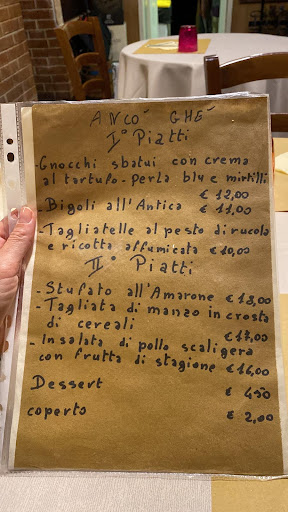 ANCO' GHE'
I° Piatti
- Gnocchi sbatui con crema
al tartufo - Perla blu e mirtilli
€ 12,00
- Bigoli all'Antica € 11,00
- Tagliatelle al pesto di rucola
e ricotta affumicata € 10,00
II° Piatti
- Stufato all'Amarone € 18,00
- Tagliata di manzo in crosta
di cereali € 17,00
- Insalata di pollo scaligera
con frutta di stagione € 16,00
Dessert € 4,50
coperto € 2,00